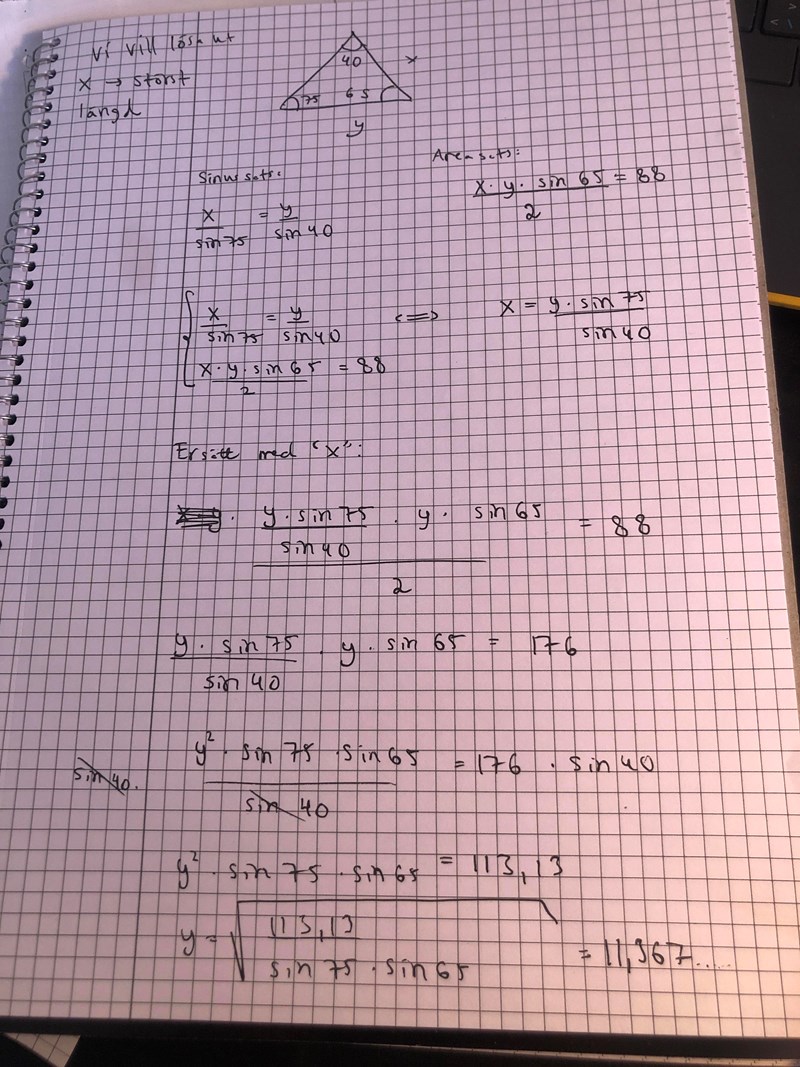 Vi vill lösa ut
x → störst
längd
40
x
75 65
y
Sinussats:
x/sin 75 = y/sin 40
Areasats:
x · y · sin 65 / 2 = 88
{ x/sin 75 = y/sin 40 <=> x = y · sin 75 / sin 40
x · y · sin 65 / 2 = 88
Ersätt med "x":
· (y · sin 75 / sin 40 · y · sin 65) / 2 = 88
y · sin 75 / sin 40 · y · sin 65 = 176
sin 40 · y² · sin 75 · sin 65 / sin 40 = 176 · sin 40
y² · sin 75 · sin 65 = 113,13
y = √(113,13 / sin 75 · sin 65) = 11,367.....